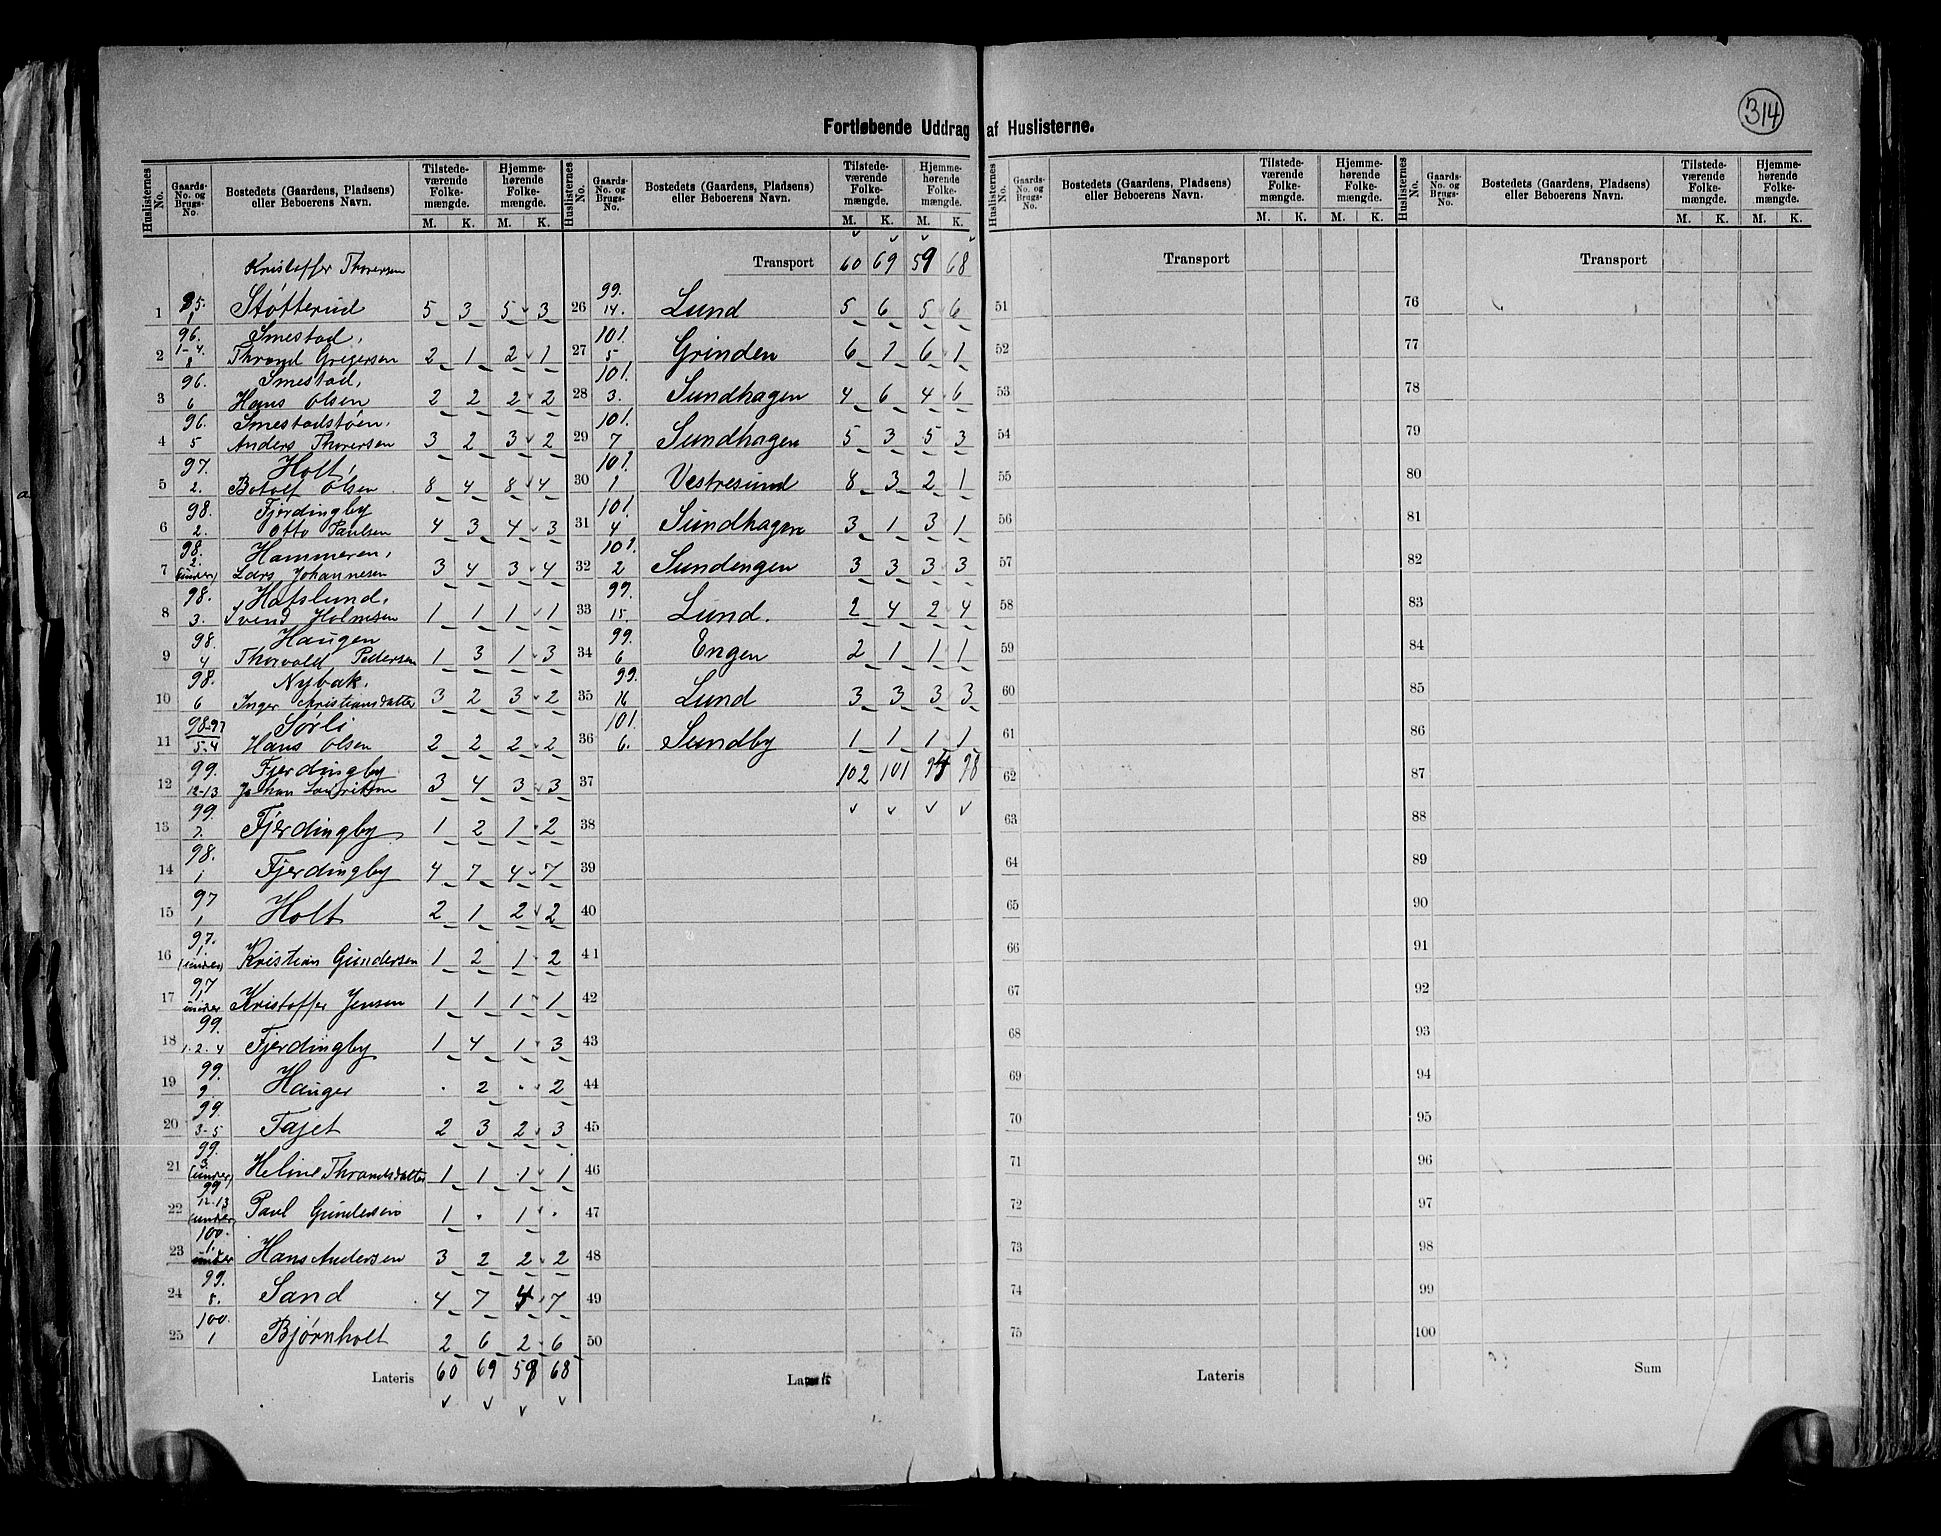 314
Fortløbende Uddrag af Huslisterne.
Huslisternes No. Gaards-No. og Brugs-No. Bostedets (Gaardens, Pladsens) eller Beboerens Navn. Tilstedeværende Folkemængde. M. K. Hjemmehørende Folkemængde. M. K.
Kristoffer Thoresen
1 95. 1 Støtterud 5 3 5 3
96. Smestad,
2 1-4. 8 Thrond Gregersen 2 1 2 1
96. Smestad,
3 6 Hans Olsen 2 2 2 2
96. Smestadstøen,
4 5 Anders Thoresen 3 2 3 2
97. Holt,
5 2. Botolf Olsen 8 4 8 4
98. Fjerdingby
6 2. Otto Paulsen 4 3 4 3
98. Hammeren,
7 2. (under) Lars Johannesen 3 4 3 4
98. Hatslund,
8 3. Svend Holmsen 1 1 1 1
98. Haugen
9 4 Thorvald Pedersen 1 3 1 3
98. Nybak,
10 6 Inger Kristiansdatter 3 2 3 2
98-97 Sørli
11 5-4 Hans Olsen 2 2 2 2
99. Fjerdingby
12 12-13 Johan Lauritsen 3 4 3 3
13 99. 7. Fjerdingby 1 2 1 2
14 98. 1 Fjerdingby 4 7 4 7
15 97 1 Holt 2 1 2 2
16 97. 1 (under) Kristian Gundersen 1 2 1 2
17 97 1 under Kristoffer Jensen 1 1 1 1
18 99. 1. 2. 4 Fjerdingby 1 4 1 3
19 99. 9 Hauger . 2 . 2
20 99. 3-5 Tajet 2 3 2 3
21 99. 3. (under) Heline Thrandsdatter 1 1 1 1
22 99 12-13 (under) Paul Gundersen 1 . 1 .
23 100. 1. under Hans Andersen 3 2 2 2
24 99. 8. Sand 4 7 4 7
25 100. 1 Bjørnholt 2 6 2 6
Lateris 60 69 59 68
Huslisternes No. Gaards-No. og Brugs-No. Bostedets (Gaardens, Pladsens) eller Beboerens Navn. Tilstedeværende Folkemængde. M. K. Hjemmehørende Folkemængde. M. K.
Transport 60 69 59 68
26 99. 14. Lund 5 6 5 6
27 101. 5 Grinden 6 1 6 1
28 101. 3. Sundhagen 4 6 4 6
29 101. 7 Sundhagen 5 3 5 3
30 101. 1 Vestresund 8 3 2 1
31 101. 4 Sundhagen 3 1 3 1
32 101. 2 Sundengen 3 3 3 3
33 99. 15. Lund. 2 4 2 4
34 99. 6 Engen 2 1 1 1
35 99. 16 Lund 3 3 3 3
36 101. 6. Sundby 1 1 1 1
37 102 101 94 98
38
39
40
41
42
43
44
45
46
47
48
49
50
Lateris
Huslisternes No. Gaards-No. og Brugs-No. Bostedets (Gaardens, Pladsens) eller Beboerens Navn. Tilstedeværende Folkemængde. M. K. Hjemmehørende Folkemængde. M. K.
Transport
51
52
53
54
55
56
57
58
59
60
61
62
63
64
65
66
67
68
69
70
71
72
73
74
75
Lateris
Huslisternes No. Gaards-No. og Brugs-No. Bostedets (Gaardens, Pladsens) eller Beboerens Navn. Tilstedeværende Folkemængde. M. K. Hjemmehørende Folkemængde. M. K.
Transport
76
77
78
79
80
81
82
83
84
85
86
87
88
89
90
91
92
93
94
95
96
97
98
99
100
Sum